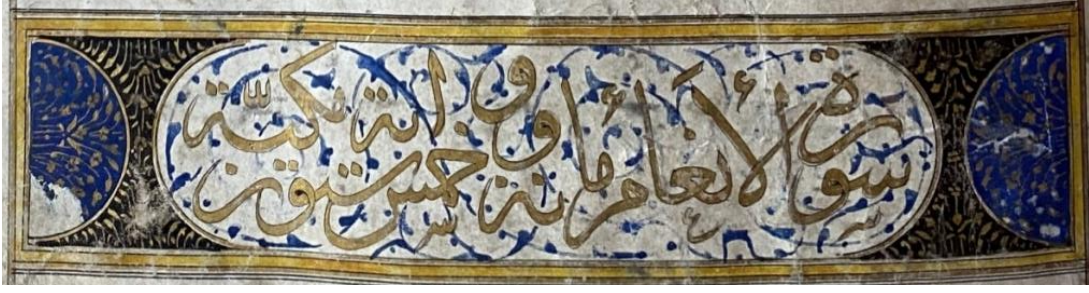 سورة الأنعام مائة وخمس وستون اية مكية